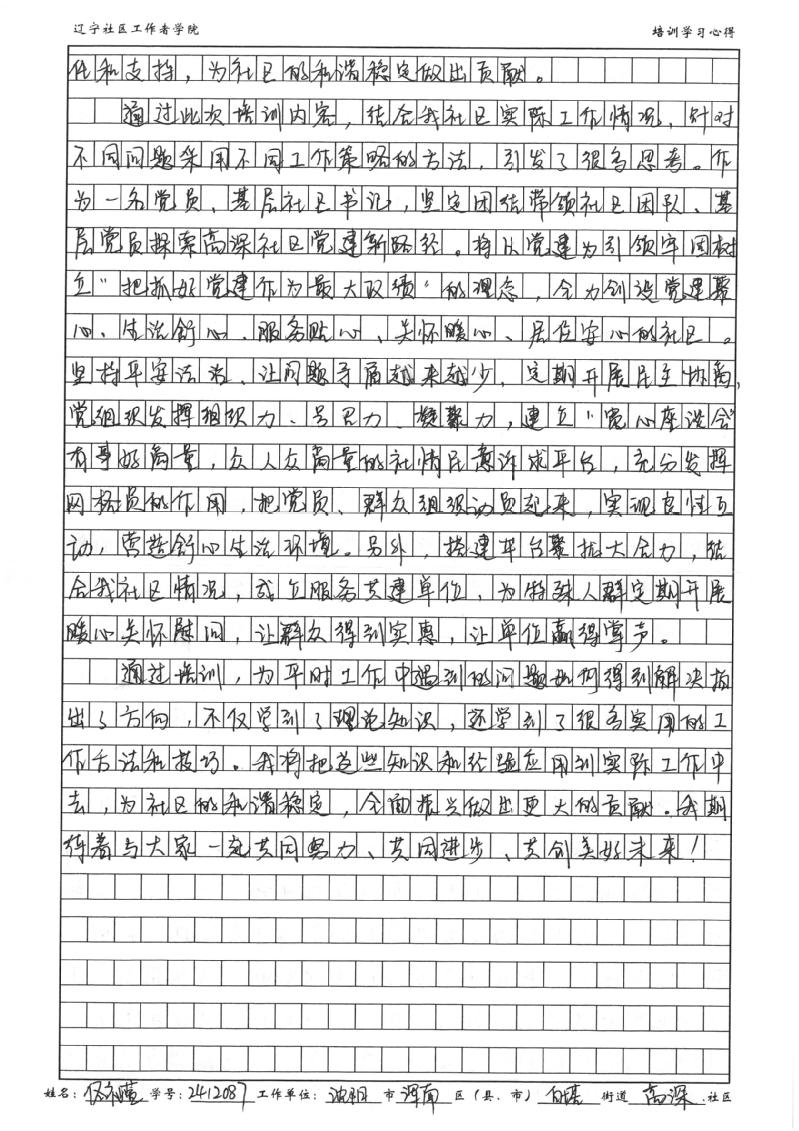 辽宁社区工作者学院 培训学习心得
任和支持，为社区的和谐稳定做出贡献。
通过此次培训内容，结合我社区实际工作情况，针对
不同问题采用不同工作策略的方法，引发了很多思考。作
为一名党员、基层社区书记，坚定团结带领社区团队、基
层党员探索高深社区党建新路径。将以党建为引领牢固树
立“把抓好党建作为最大政绩”的理念，全力创造党建聚
心、生活舒心、服务贴心、关怀暖心、居住安心的社区。
坚持平安法治、让问题矛盾越来越少，定期开展民主协商，
党组织发挥组织力、号召力、凝聚力，建立“宽心座谈会”
有事好商量，众人众商量的社情民意诉求平台，充分发挥
网格员的作用，把党员、群众组织动员起来，实现良性互
动，营造舒心生活环境。另外，搭建平台聚拢大合力，结
合我社区情况，成立服务共建单位，为特殊人群定期开展
暖心关怀慰问，让群众得到实惠，让单位赢得掌声。
通过培训，为平时工作中遇到的问题如何得到解决指
出了方向，不仅学到了理论知识，还学到了很多实用的工
作方法和技巧。我将把这些知识和经验应用到实际工作中
去，为社区的和谐稳定，全面振兴做出更大的贡献。我期
待着与大家一起共同努力、共同进步、共创美好未来！
姓名： 学号：2412087 工作单位：沈阳 市 浑南 区（县、市） 白塔 街道 高深 社区